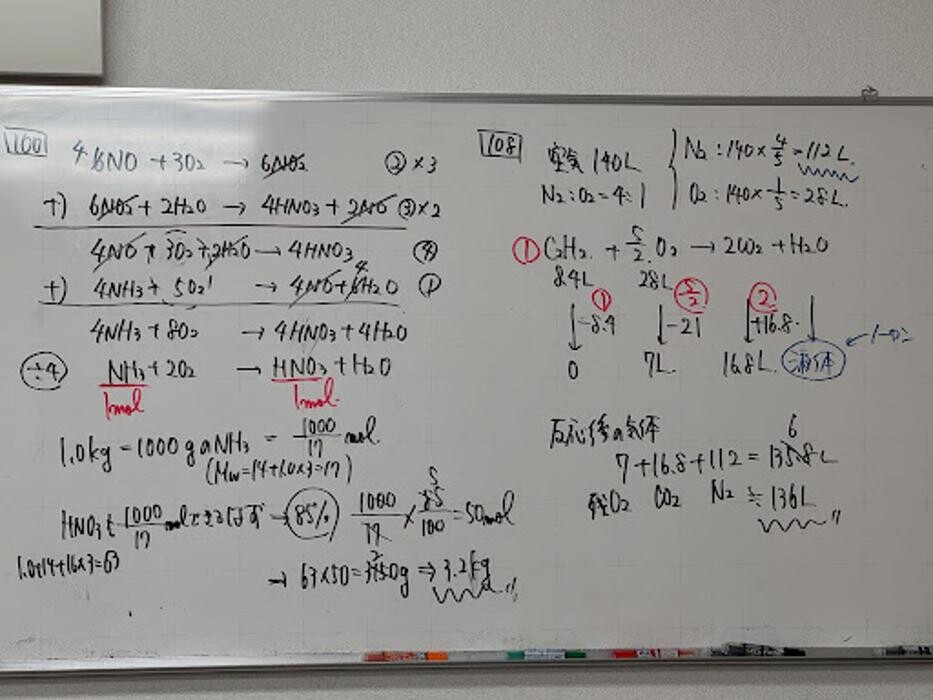 100
4 6NO + 3O₂ → 6NO₂ ②×3
+) 6NO₂ + 2H₂O → 4HNO₃ + 2NO ③×2
4NO + 3O₂ + 2H₂O → 4HNO₃ ④
+) 4NH₃ + 5O₂ → 4NO + 6H₂O ①
4
4NH₃ + 8O₂ → 4HNO₃ + 4H₂O
÷4 NH₃ + 2O₂ → HNO₃ + H₂O
1mol 1mol
1.0kg = 1000 g a NH₃ = 1000/17 mol.
(Mw = 14 + 1.0×3 = 17)
HNO₃も 1000/17 mol できるはず → 85% 1000/17 × 85/100 = 50mol
5
1.0+14+16×3=63
→ 63×50 = 3150g ⇒ 3.2kg
108
空気 140L
N₂:O₂ = 4:1
N₂: 140 × 4/5 = 112L.
O₂: 140 × 1/5 = 28L.
① C₂H₂ + 5/2 O₂ → 2CO₂ + H₂O
8.4L 28L
① 5/2 2
-8.4 -21 +16.8
0 7L. 16.8L. 液体
反応後の気体
6
7 + 16.8 + 112 = 135.8L
残O₂ CO₂ N₂ ≒ 136L